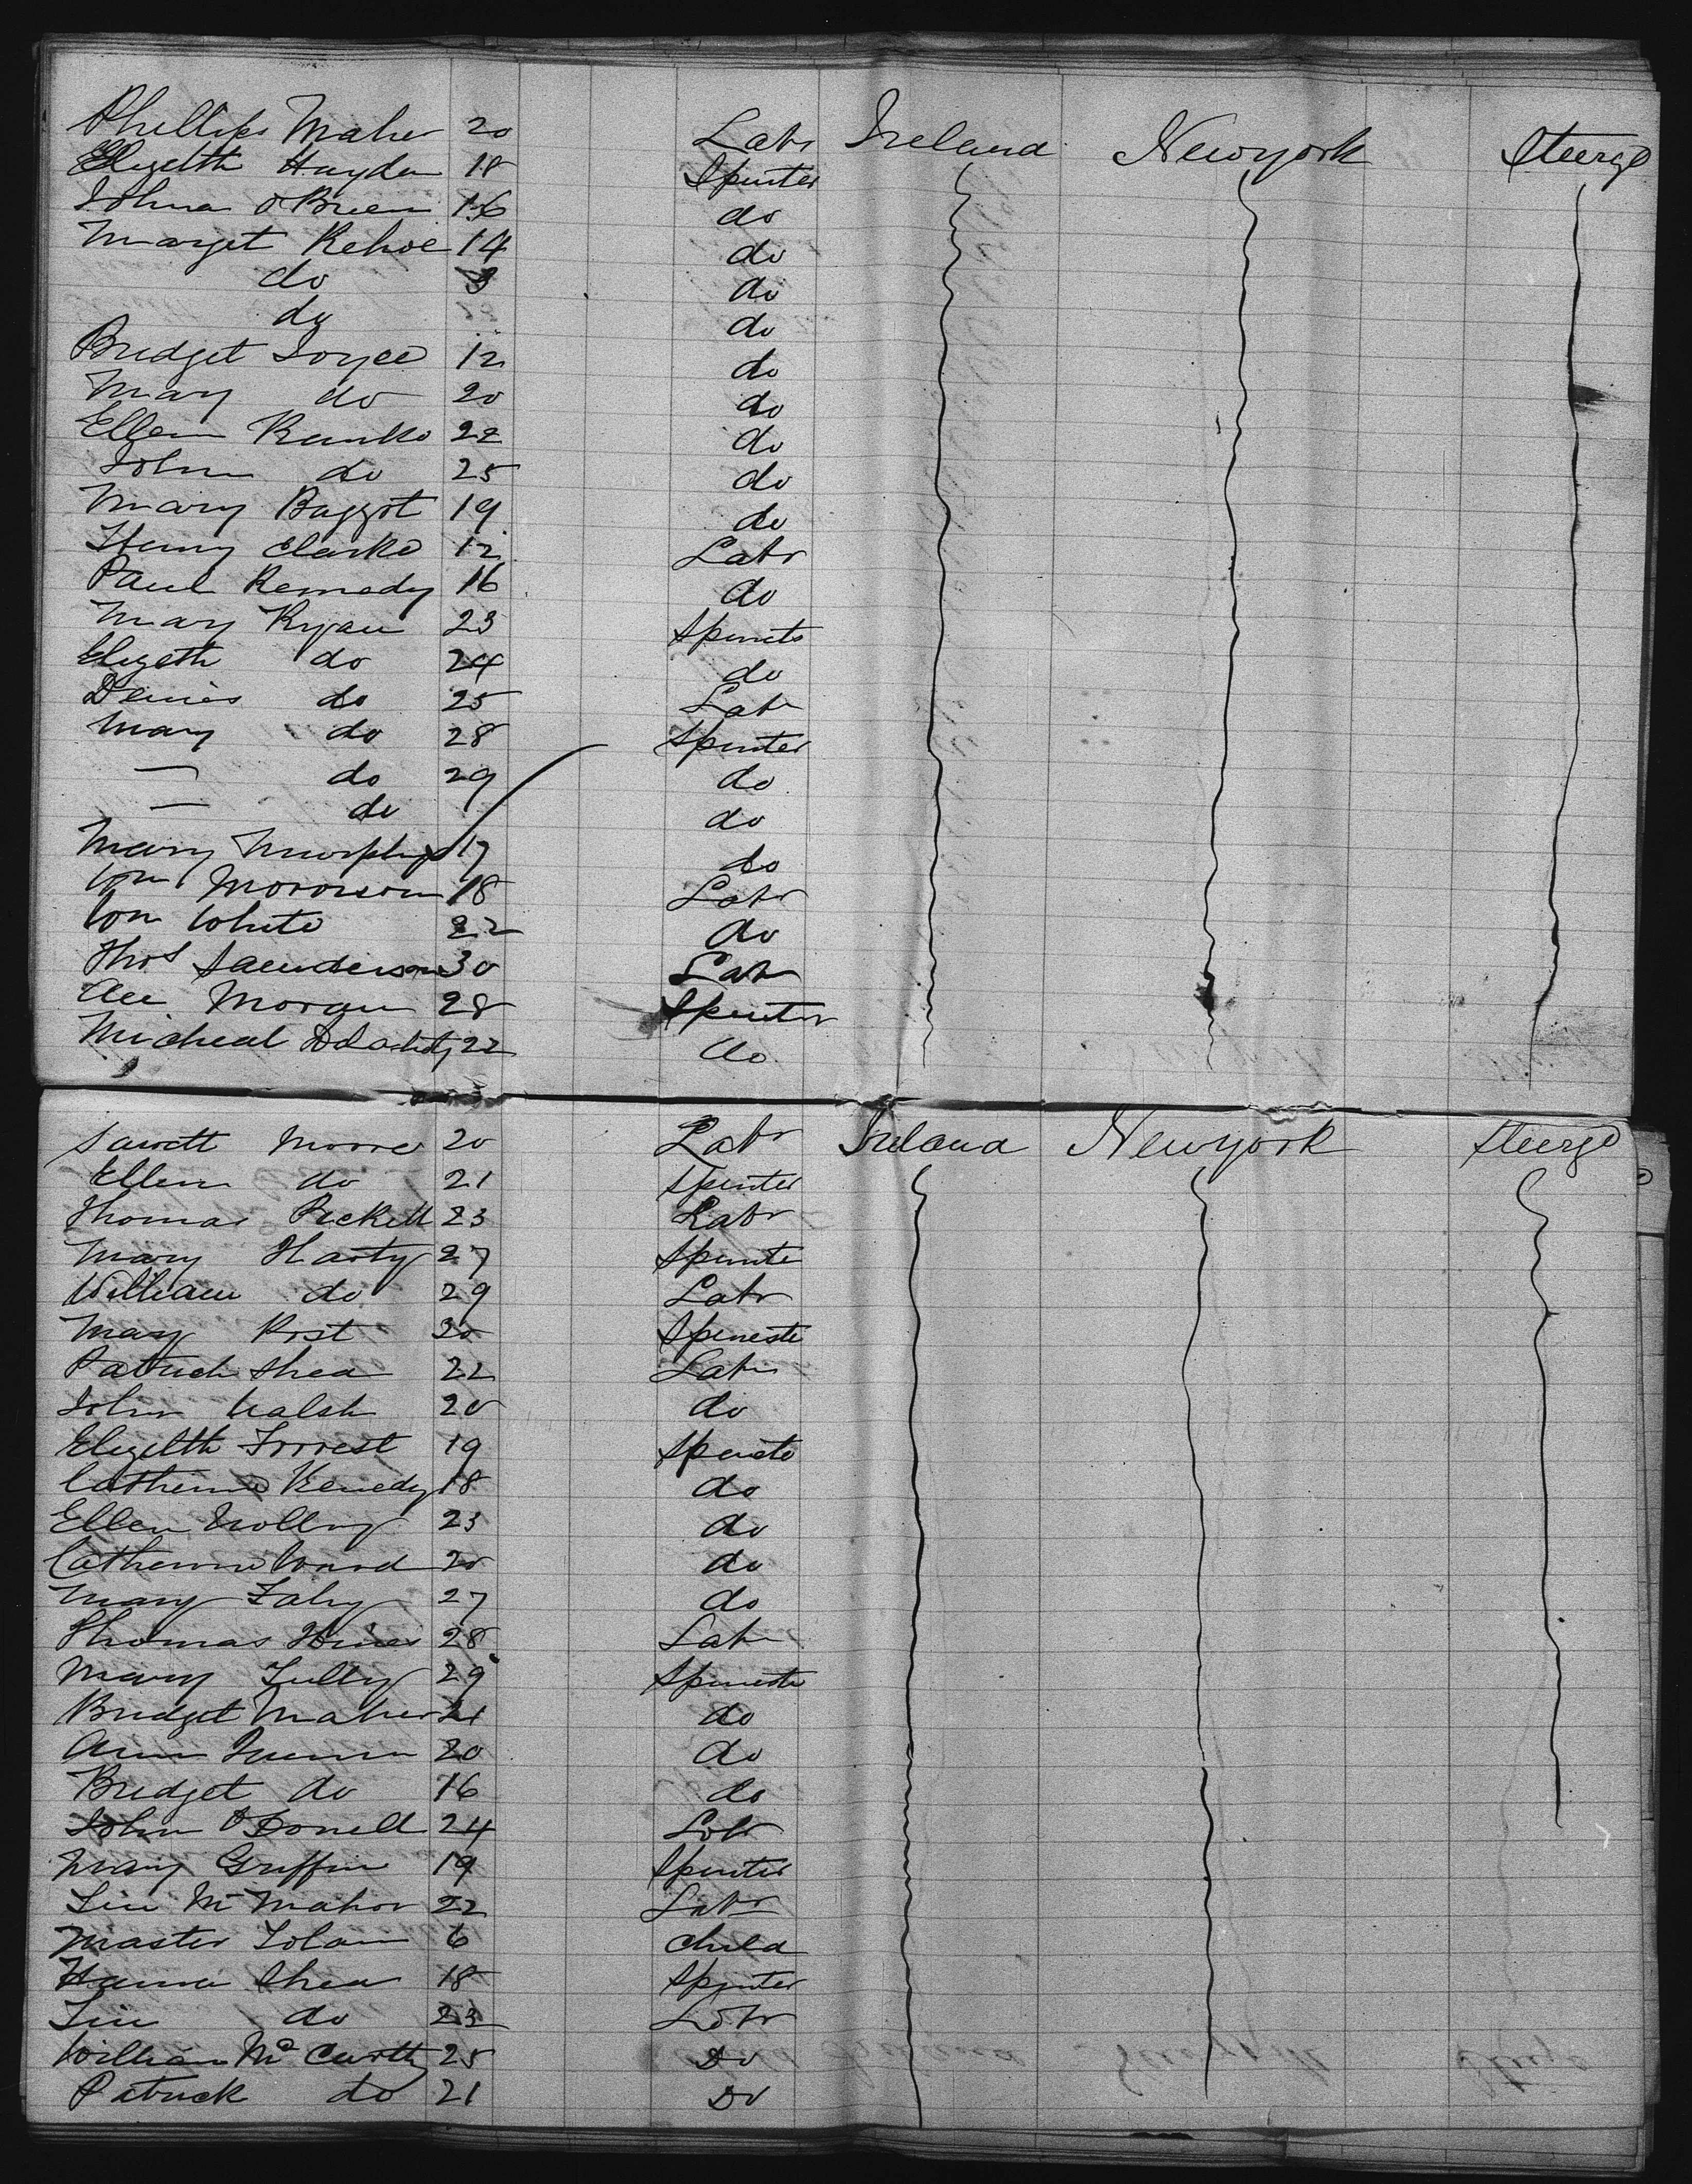 Phillips Maher 20 Labr Ireland Newyork Steerge
Elizebth Hayden 18 Spinter
Johna O'Brien 16 do
Marget Kehoe 14 do
do 9 do
do do
Bridget Joyce 12 do
Mary do 20 do
Ellen 22 do
John do 25 do
Mary Baggot 19 do
Henry Clarke 12 Labr
Paul Kennedy 16 do
Mary Ryan 23 Spinets
Elizeth do 24 do
Denis do 25 Labr
Mary do 28 Spinter
— do 29 do
— do do
Mary Murphy 17 do
Wm Morrison 18 Labr
Wm White 22 do
Thos Saunderson 30 Labr
Morgan 28 Spinter
Micheal 22 do
Moore 20 Labr Ireland Newyork Steerge
Ellen do 21 Spinter
Thomas Pickett 23 Labr
Mary Harty 27 Spinte
William do 29 Labr
Mary Rost 30 Spineste
Patrick Shea 22 Labr
John Walsh 20 do
Elizebth Forrest 19 Spinste
Catherine Kenedy 18 do
Ellen 23 do
Catherine Ward 20 do
Mary Fahy 27 do
Thomas Hines 28 Labr
Mary Tully 29 Spineste
Bridget Maher 21 do
Ann 20 do
Bridget do 16 do
John O'Donell 24 Labr
Mary Griffin 19 Spinter
Mc Mahon 22 Labr
Master 6 Child
Hanna Shea 18 Spinter
do 23 Labr
William Mc Carthy 25 Do
Patrick do 21 Do